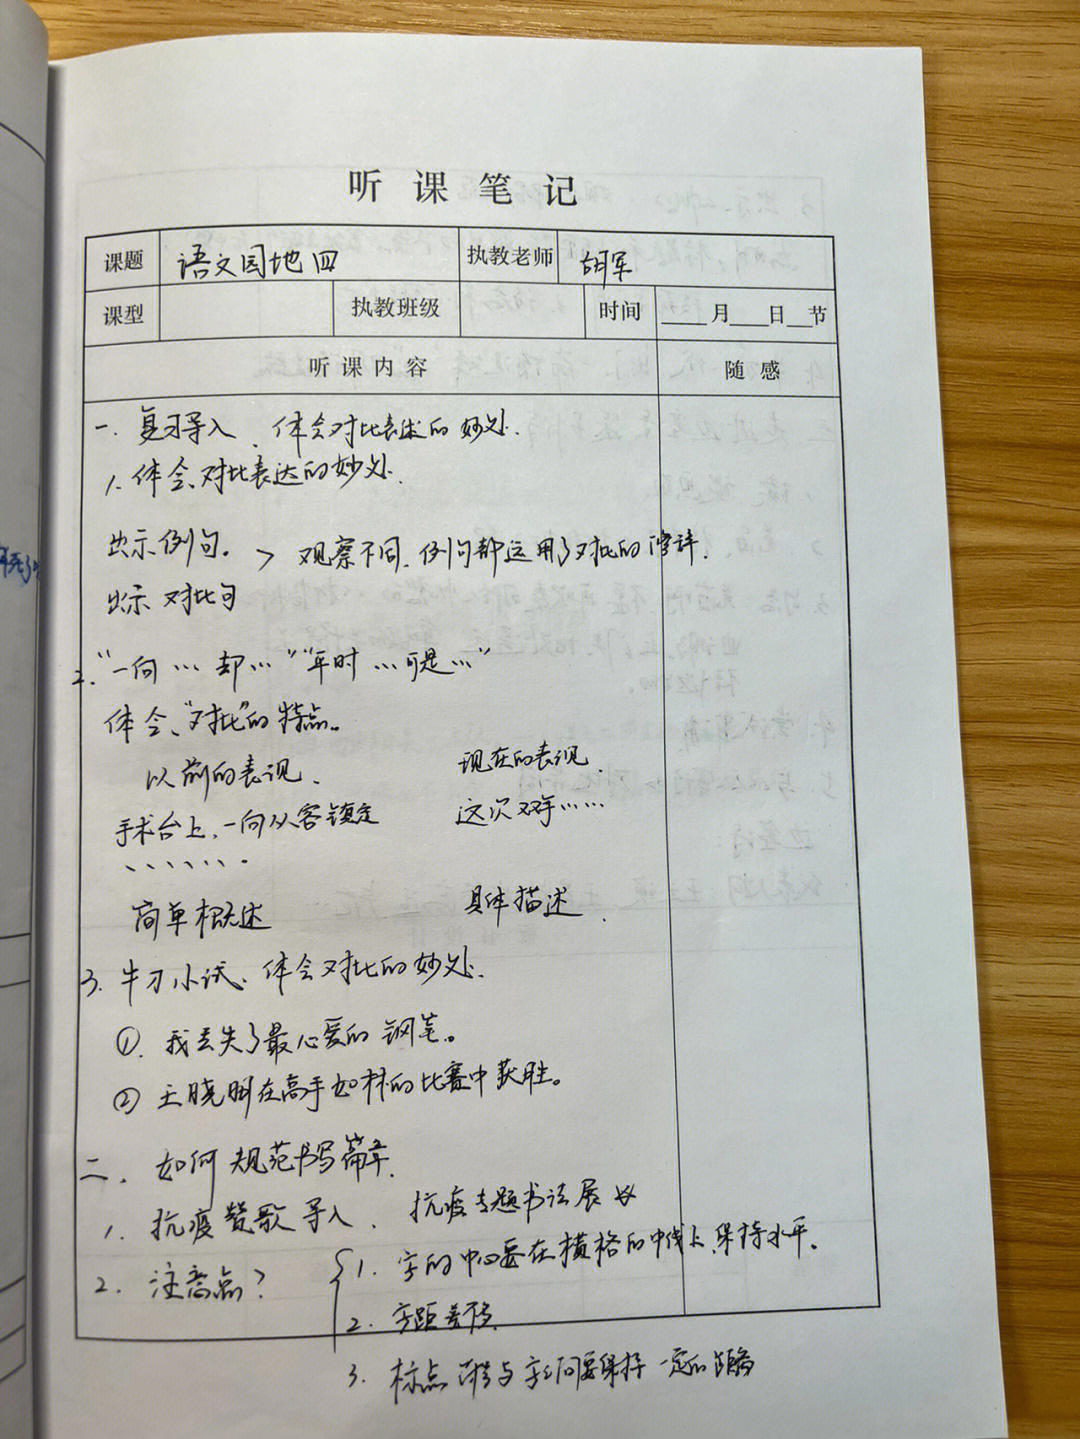 听课笔记
课题 语文园地四 执教老师 胡军
课型 执教班级 时间 月 日 节
听课内容 随感
一. 复习导入、体会对比表述的妙处.
1. 体会对比表达的妙处.
出示例句. > 观察不同.例句都运用了对比的修辞.
出示对比句
2. “一向…却…”“平时…可是…”
体会“对比”的特点。
以前的表现、 现在的表现.
手术台上,一向从容镇定 这次双手……
、、、、、、.
简单概述 具体描述.
3. 牛刀小试、体会对比的妙处.
①. 我丢失了最心爱的钢笔。
② 王晓明在高手如林的比赛中获胜。
二. 如何规范书写篇章.
1. 抗疫赞歌导入. 抗疫专题书法展
2. 注意点?
1. 字的中心要在横格的中线上,保持水平.
2. 字距
3. 标点 与字之间要保持一定的距离